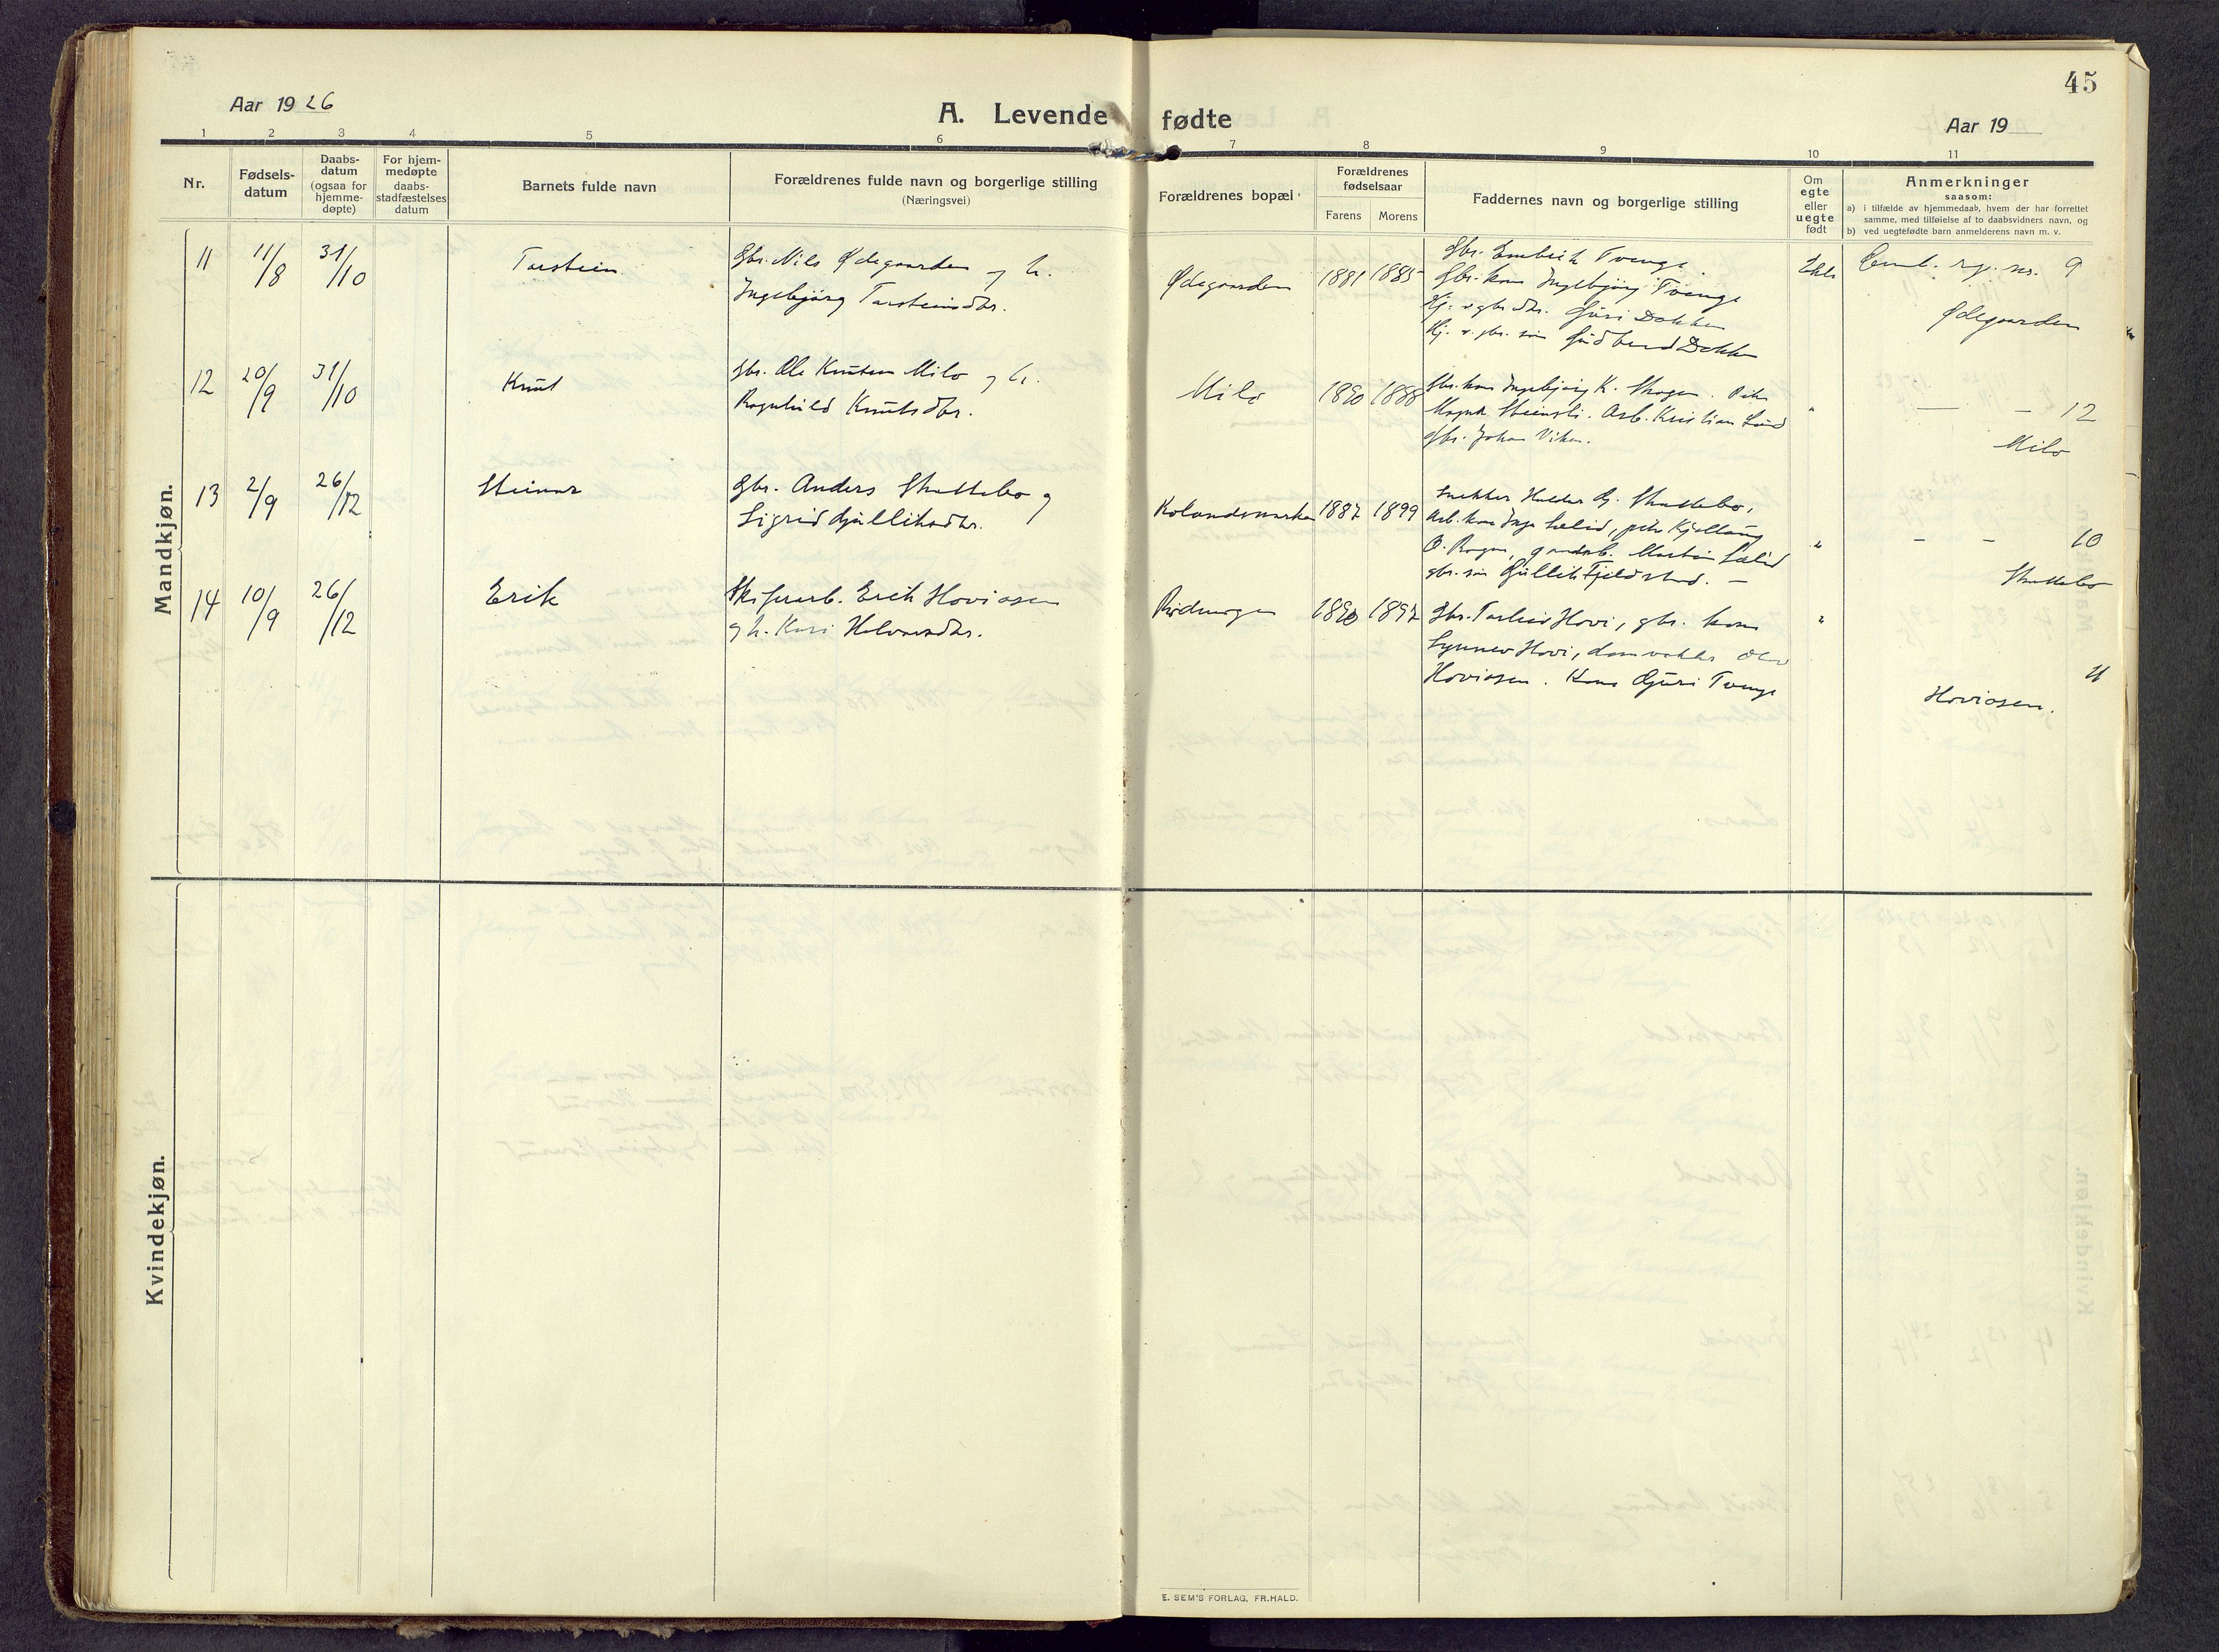 45
Aar 1926
A. Levende fødte
Aar 19
1 2 3 4 5 6 7 8 9 10 11
Nr.
Fødsels-
datum
Daabs-
datum
(ogsaa for
hjemme-
døpte)
For hjem-
medøpte
daabs-
stadfæstelses
datum
Barnets fulde navn
Forældrenes fulde navn og borgerlige stilling
(Næringsvei)
Forældrenes bopæl
Forældrenes
fødselsaar
Farens Morens
Faddernes navn og borgerlige stilling
Om
egte
eller
uegte
født
Anmerkninger
saasom:
a) i tilfælde av hjemmedaab, hvem der har forrettet
samme, med tilføielse af to daabsvidners navn, og
b) ved uegtefødte barn anmelderens navn m. v.
Mandkjøn.
11 11/8 31/10 Torstein Gbr. Nils Ødegaarden og h.
Ingebjørg Torsteinsdtr.
Ødegaarden 1881 1885
Gbr. Embrik Tvenge
Gbr. kone Ingebjørg Tvenge
Hj. v. gbr.dtr. Guri Dokken
Hj. v. gbr. søn Gudbrand Dokken
Ekte
rg. nr. 9
Ødegaarden
12 20/9 31/10 Knut Gbr. Ole Knutsen Milo og h.
Ragnhild Knutsdtr.
Milo 1890 1888
Gbr. kone Ingebjørg K. Skogen. Pike
Steinsli. Arb. Kristian Lund
Gbr. Johan Viken.
"
— – 12
Milo
13 2/9 26/12 Steinar Gbr. Anders Skuttebo og
Sigrid Gulliksdtr.
1887 1899
Snekker Halder G. Skuttebo,
Arb. kone Inga Lælid, pike Kjellaug
O. Rogne, gaardarb. Martin Lælid
gbr. søn Gullik Fjeldstad. –
"
– – 10
Skuttebo
14 10/9 26/12 Erik Skiferarb. Erik Hoviosen
og h. Kari Halvorsdtr.
Rødningen 1890 1897
Gbr. Torleiv Hovi, gbr. kone
Synnev Hovi, Olav
Hoviosen. Kone Guri Tvenge
"
11
Hoviosen.
Kvindekjøn.
E. SEM'S FORLAG, FR.HALD.